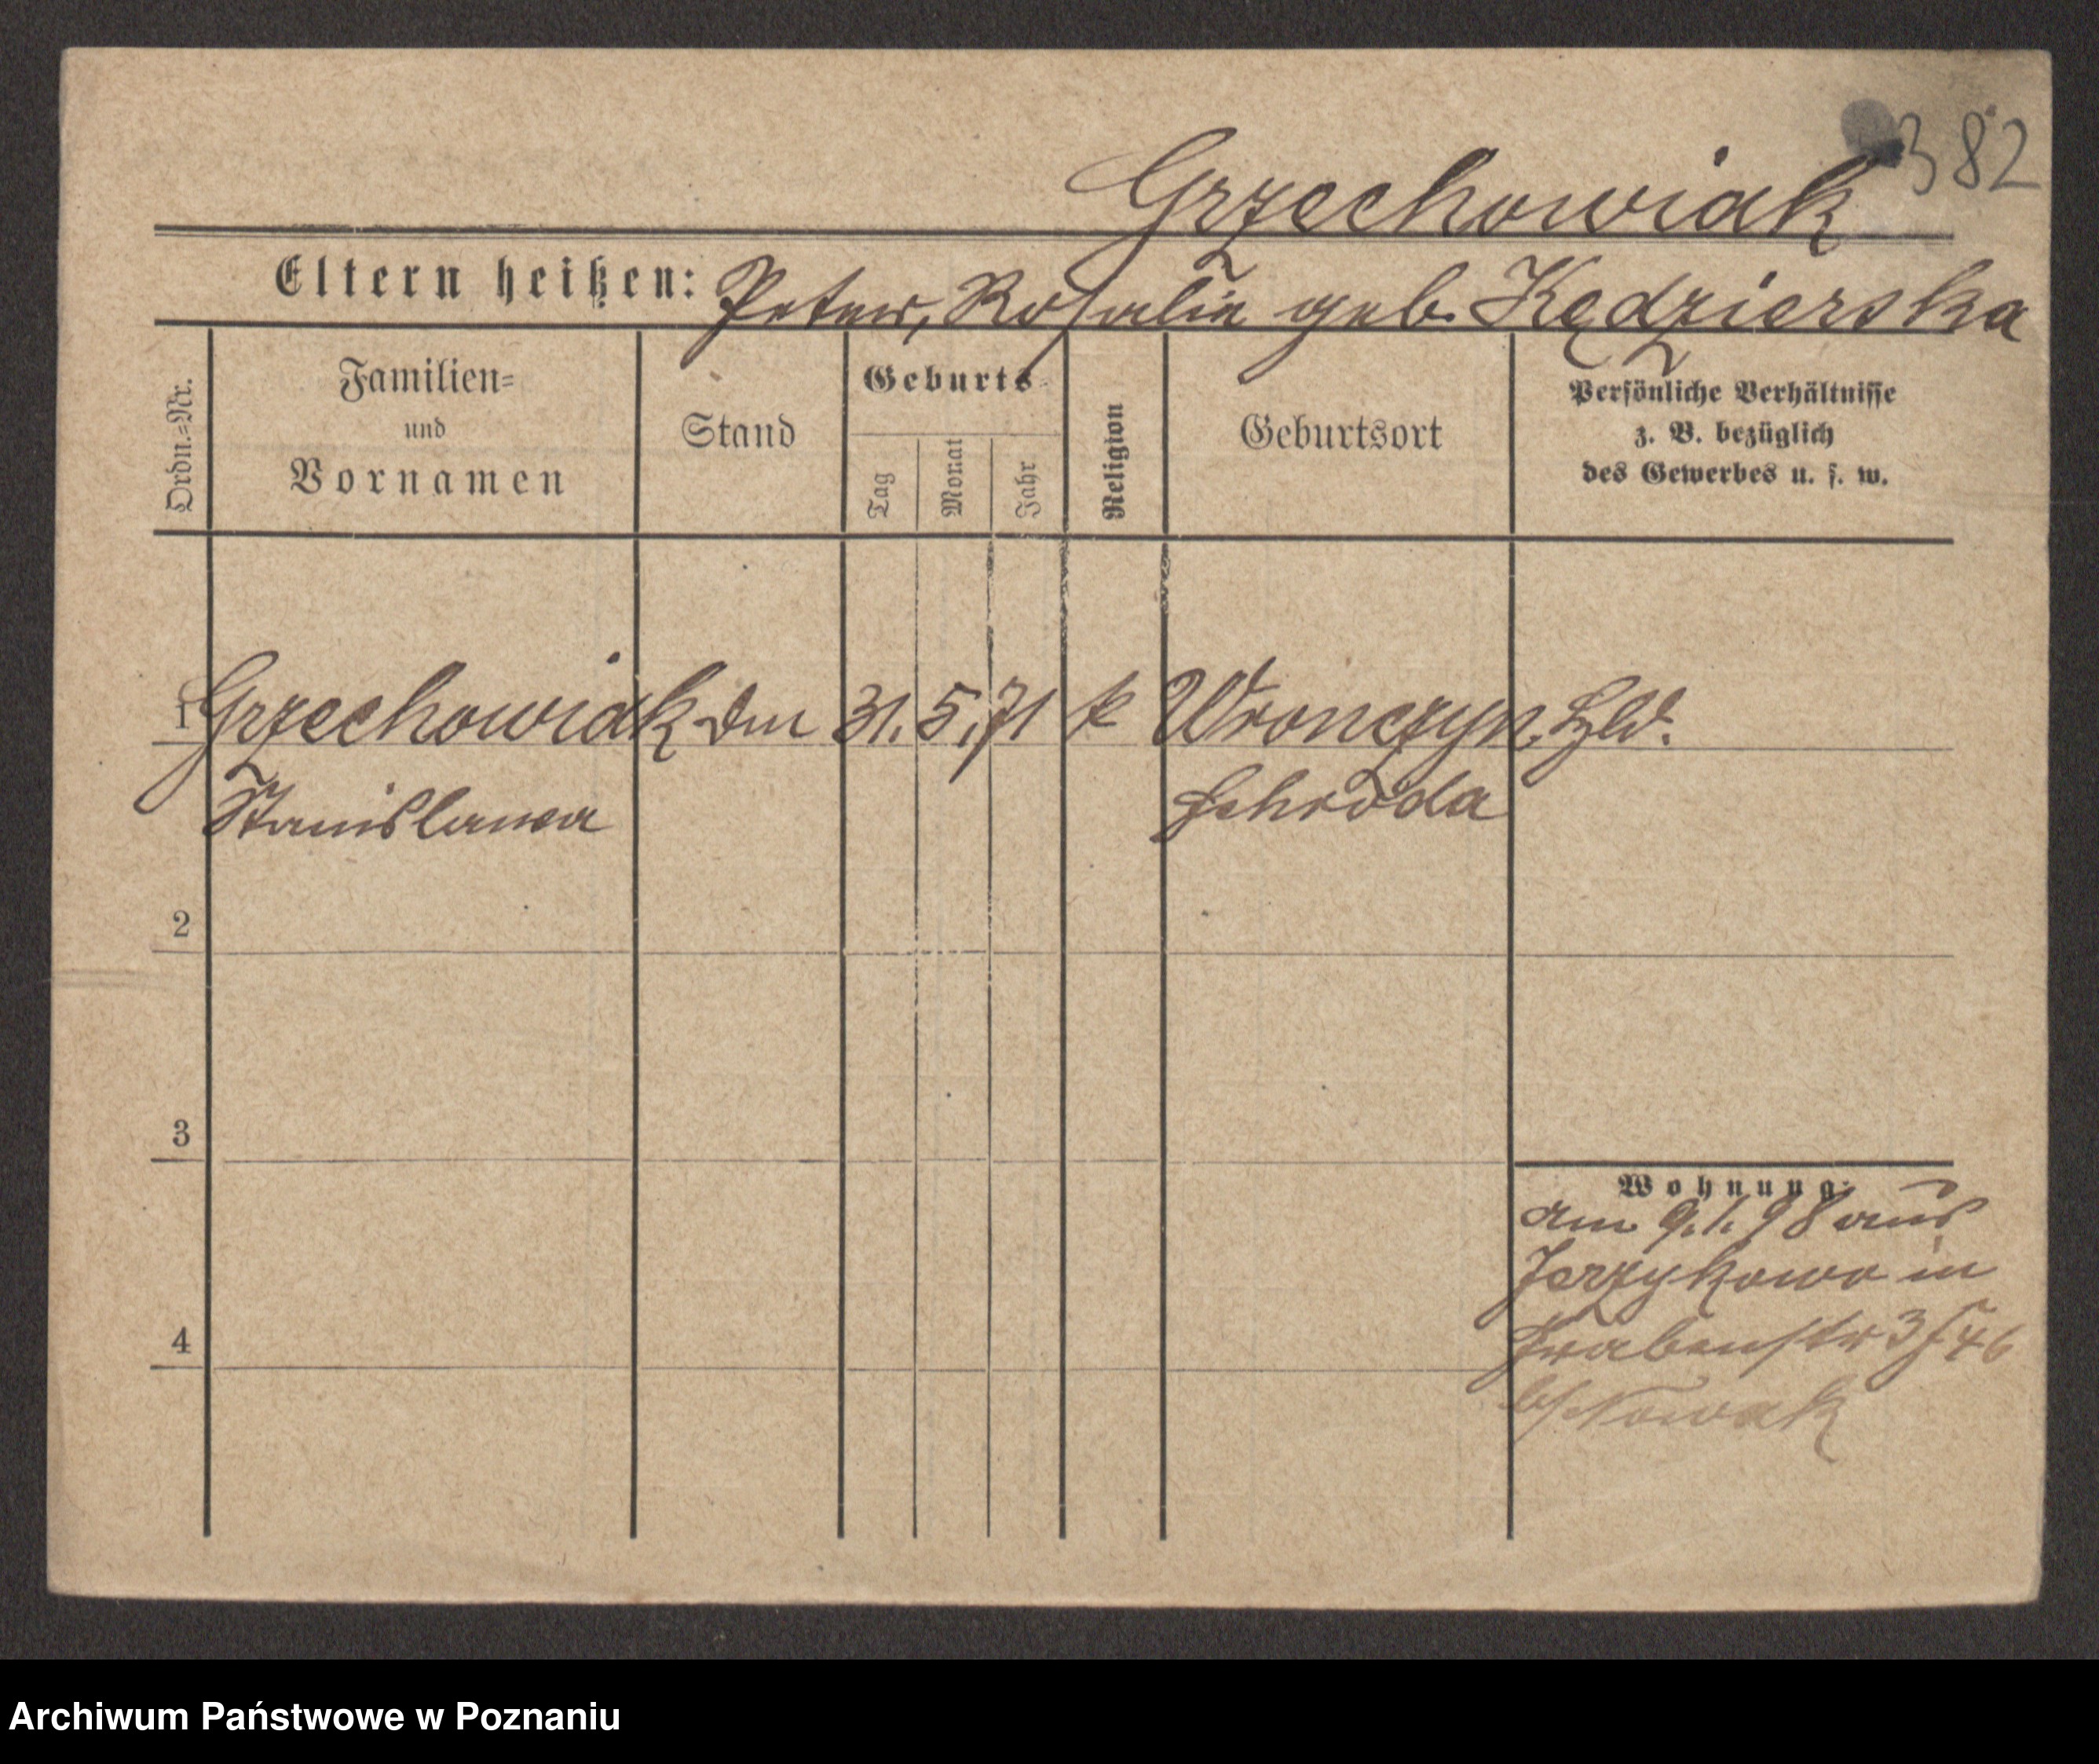 382
Grzechowiak
Eltern heißen: Peter, Rosalie geb. Kędzierska
Ordn.=Nr.
Familien=
und
Vornamen
Stand
Geburts=
Tag
Monat
Jahr
Religion
Geburtsort
Persönliche Verhältnisse
z. B. bezüglich
des Gewerbes u. s. w.
1 Grzechowiak 31. 5. 71 k Wronczyn,
Stanislawa Schroda
2
3
4
Wohnung:
am 9.1.98 aus
Jerzykowo in
Grabenstr 3
Nowak
Archiwum Państwowe w Poznaniu